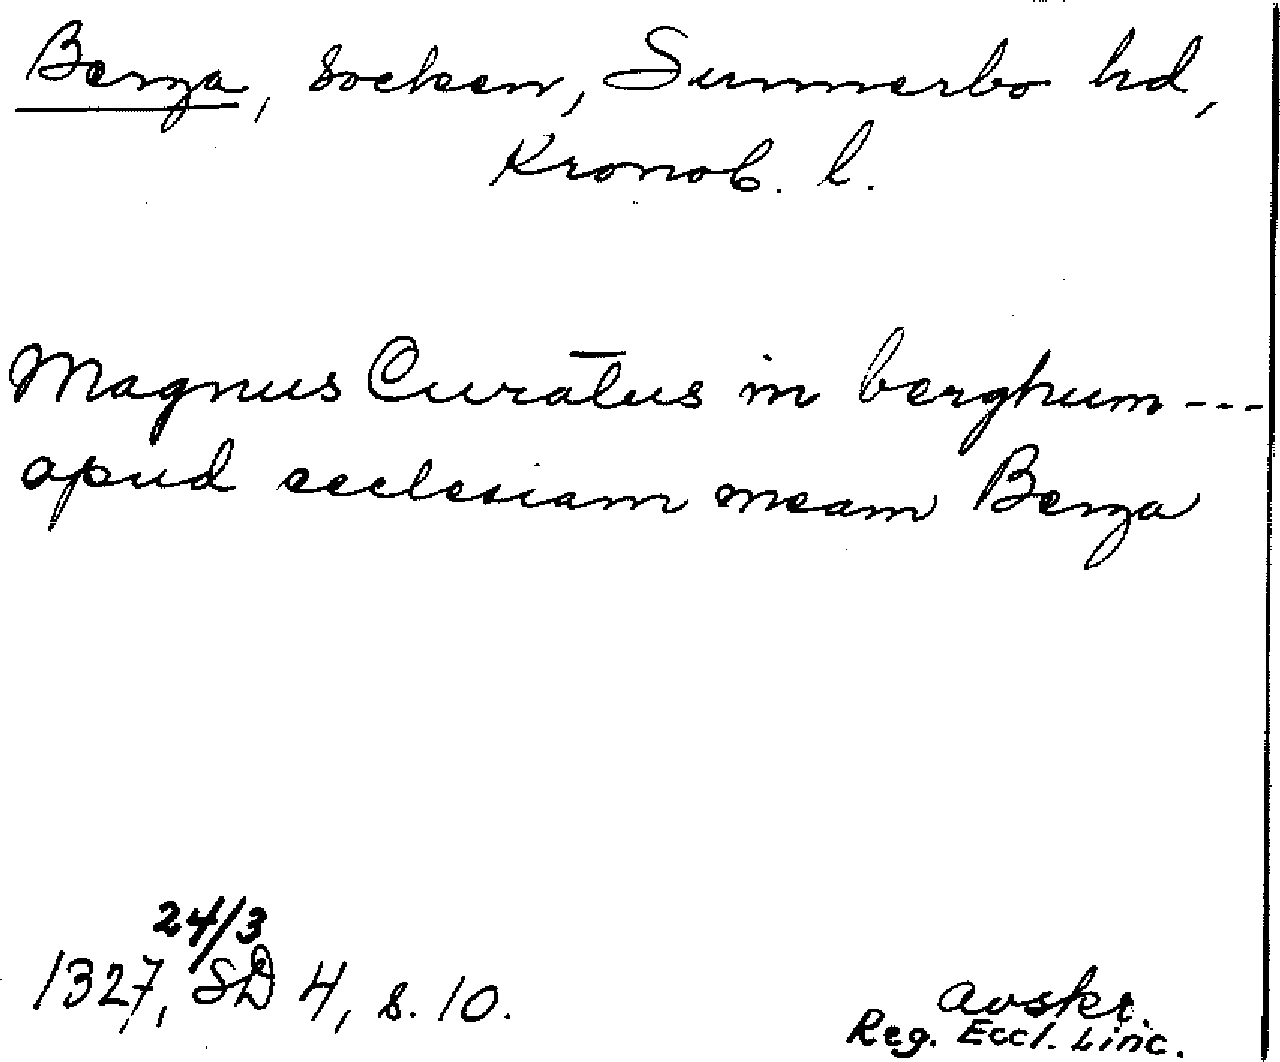 Berga, socken, Sunnerbo hd,
Kronob. l.
Magnus Curatus in berghum ---
apud ecclesiam meam Berga
24/3
1327, SD 4, s. 10.
avskr.
Reg. Eccl. Linc.